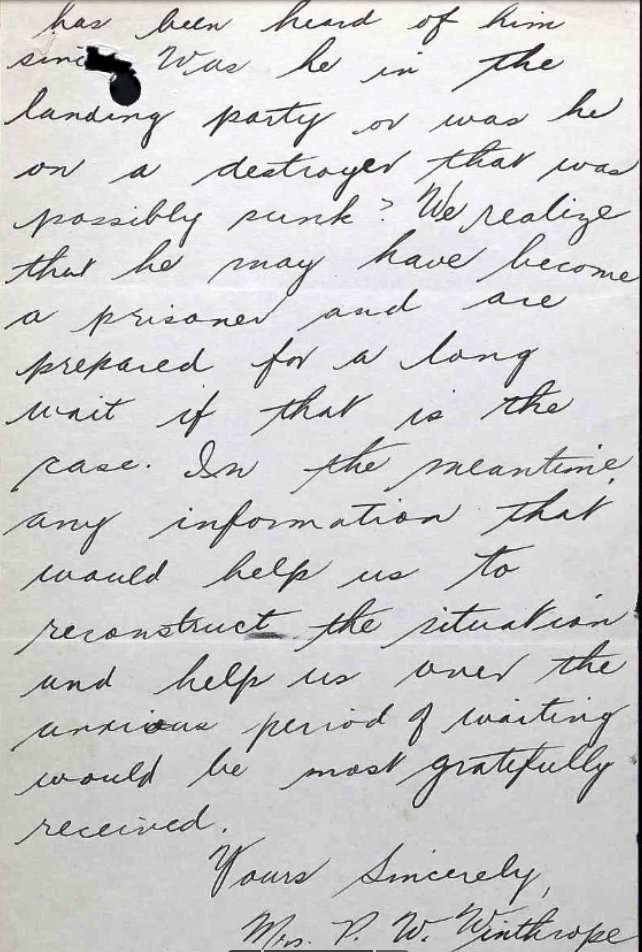 has been heard of him
sin Was he in the
landing party or was he
on a destroyer that was
possibly sunk? We realize
that he may have become
a prisoner and are
prepared for a long
wait if that is the
case. In the meantime,
any information that
would help us to
reconstruct the situation
and help us over the
anxious period of waiting
would be most gratefully
received.
Yours Sincerely,
Mrs. P. W. Winthrope